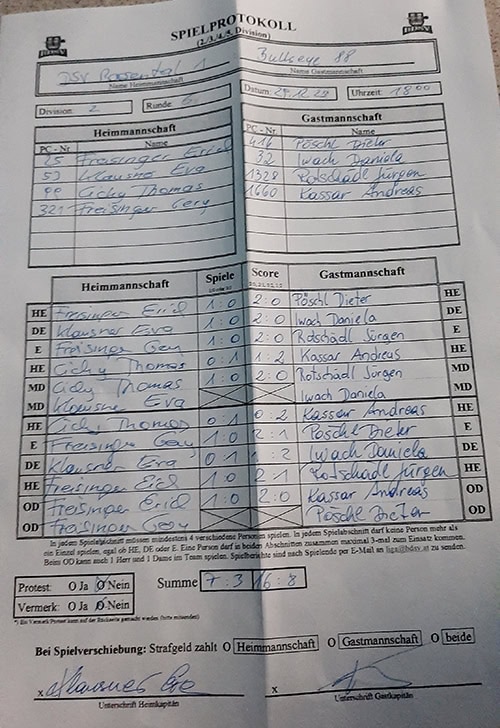 SPIELPROTOKOLL
(2./3./4./5. Division)
DSV Rosental 1 Bullseye 88
Name Heimmannschaft Name Gastmannschaft
Division: 2 Runde: 6. Datum: 29.12.23 Uhrzeit: 18 00
Heimmannschaft Gastmannschaft
PC - Nr. Name PC - Nr. Name
25 Freisinger Erich 416 Pöschl Dieter
53 Klausner Eva 32 Iwach Daniela
99 Cichy Thomas 1328 Rotschädl Jürgen
321 Freisinger Gery 1660 Kassar Andreas
Heimmannschaft Spiele Score Gastmannschaft
HE Freisinger Erich 1:0 2:0 Pöschl Dieter HE
DE Klausner Eva 1:0 2:0 Iwach Daniela DE
E Freisinger Gery 1:0 2:0 Rotschädl Jürgen E
HE Cichy Thomas 0:1 1:2 Kassar Andreas HE
MD Cichy Thomas 1:0 2:0 Rotschädl Jürgen MD
MD Klausner Eva Iwach Daniela MD
HE Cichy Thomas 0 1 0:2 Kassar Andreas HE
E Freisinger Gery 1:0 2:1 Pöschl Dieter E
DE Klausner Eva 0 1 1:2 Iwach Daniela DE
HE Freisinger Erich 1 0 2 1 Rotschädl Jürgen HE
OD Freisinger Erich 1:0 2:0 Kassar Andreas OD
OD Freisinger Gery Pöschl Dieter OD
In jedem Spielabschnitt müssen mindestens 4 verschiedene Personen spielen. In jedem Spielabschnitt darf keine Person mehr als
ein Einzel spielen, egal ob HE, DE oder E. Eine Person darf in beiden Abschnitten zusammen maximal 3-mal zum Einsatz kommen.
Beim OD kann auch 1 Herr und 1 Dame im Team spielen. Spielberichte sind nach Spielende per E-Mail an liga@bdsv.at zu senden.
Protest: O Ja O Nein Summe 7:3 16:8
Vermerk: O Ja O Nein
*) Ein Vermerk/Protest kann auf der Rückseite gemacht werden (bitte umseitig)
Bei Spielverschiebung: Strafgeld zahlt O Heimmannschaft O Gastmannschaft O beide
x Klausner Eva x
Unterschrift Heimkapitän Unterschrift Gastkapitän